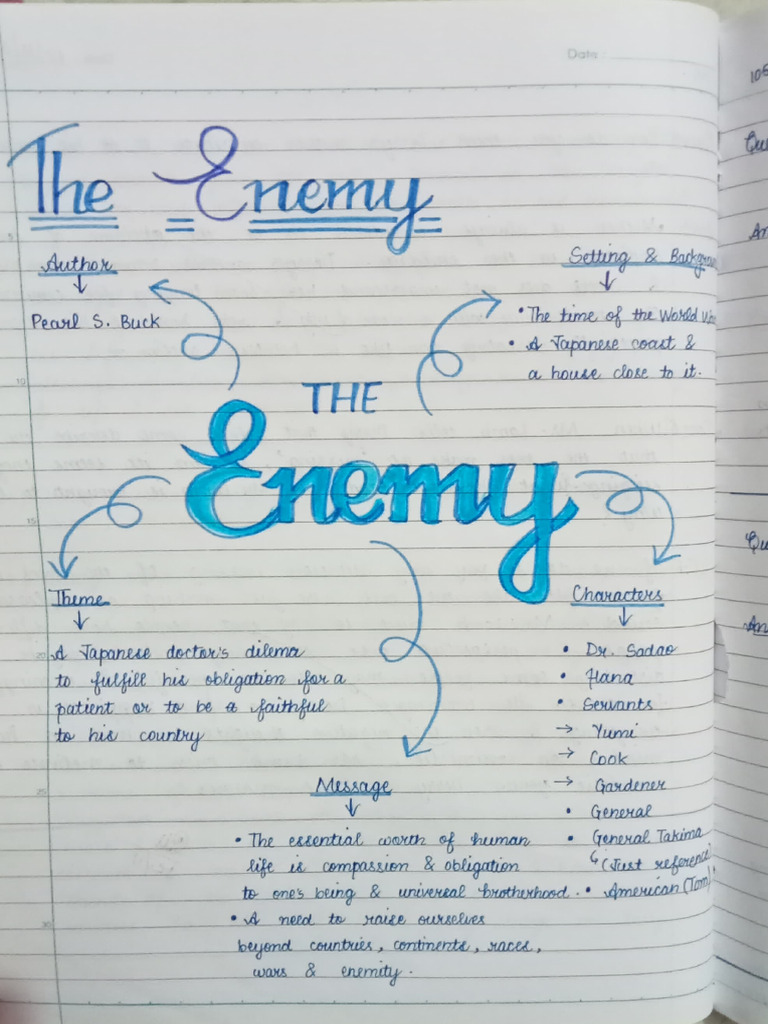 Date :
The Enemy
Author
Pearl S. Buck
Setting & Backgrou
• The time of the World
• A Japanese coast &
a house close to it.
THE
Enemy
Theme
A Japanese doctor's dilema
to fulfill his obligation for a
patient or to be a faithful
to his country
Characters
• Dr. Sadao
• Hana
• Servants
→ Yumi
→ Cook
→ Gardener
• General
• General Takima
(Just reference
• American (Tom)
Message
• The essential worth of human
life is compassion & obligation
to one's being & universal brotherhood.
• A need to raise ourselves
beyond countries, continents, races,
wars & enemity.
10
15
20
25
30
106
Qu
An
Qu
An